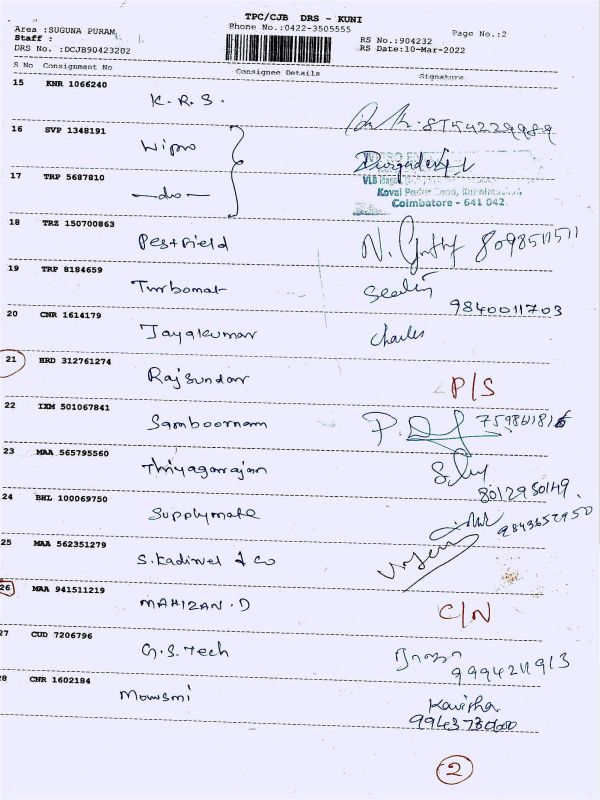 TPC/CJB DRS - KUNI
Area :SUGUNA PURAM Phone No.:0422-3505555 Page No.:2
Staff : RS No.:904232
DRS No. :DCJB90423202 RS Date:10-Mar-2022
S No Consignment No Consignee Details Signature
15 KNR 1066240 K.R.S. 8754229989
16 SVP 1348191 Wipro Durgadevi
17 TRP 5687810 -do-
Koval Pudur Road,
Coimbatore - 641 042.
18 TRZ 150700863 Pestfield N. 8098511511
19 TRP 8184659 Turbomat 9840011703
20 CNR 1614179 Jayakumar Charles
21 HRD 312761274 Rajsundar P/S
22 IXM 501067841 Samboornam P.
23 MAA 565795560 Thiyagarajan 8012950149
24 BHL 100069750 Supplymate 9843652950
25 MAA 562351279 S.Kadirvel & Co
26 MAA 941511219 MAHIZAN.D C/N
27 CUD 7206796 G.S.Tech 9994211913
28 CNR 1602184 Mowsmi Kavipha
2